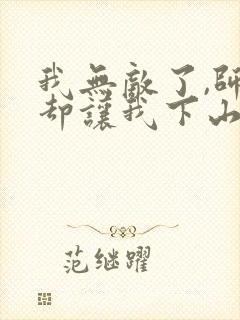 我無敵了,師
却讓我下山
范继躍